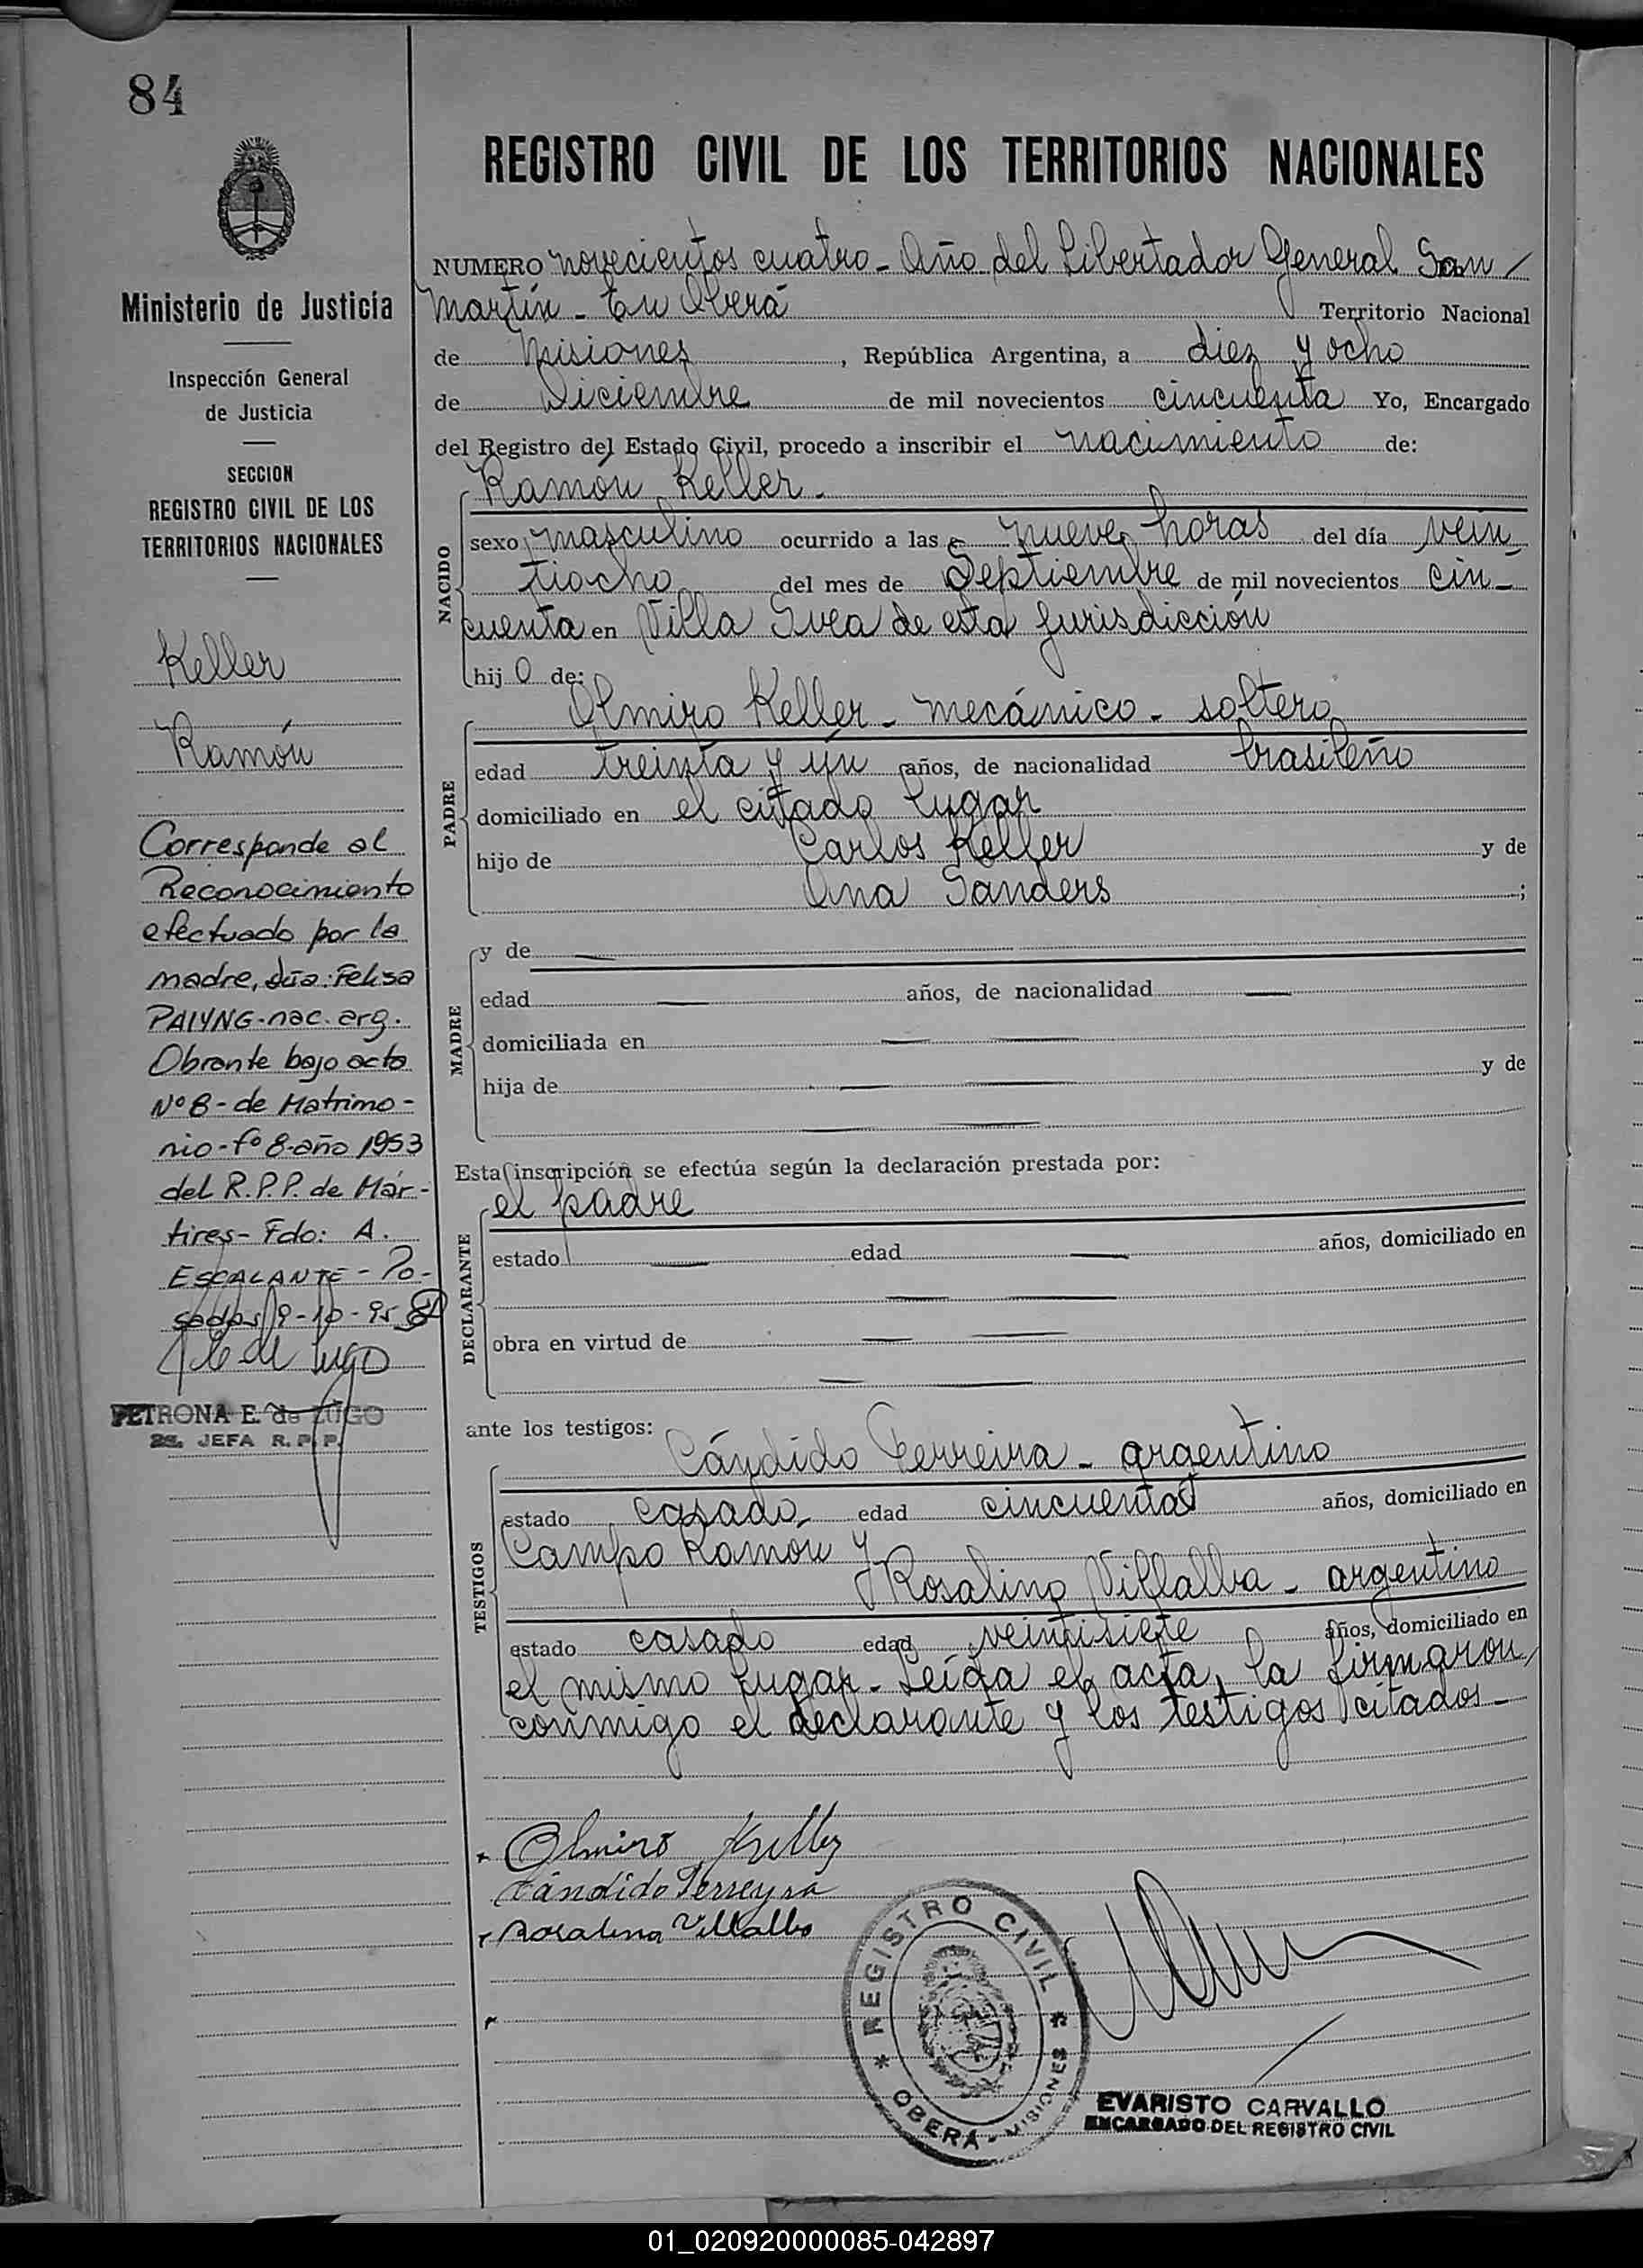 84
Ministerio de Justicia
Inspección General
de Justicia
SECCION
REGISTRO CIVIL DE LOS
TERRITORIOS NACIONALES
Keller
Ramón
Corresponde al
Reconocimiento
efectuado por la
madre, dña: Felisa
PAIYNG-nac. arg.
Obrante bajo acta
Nº 8-de Matrimo-
nio-fº 8-año 1953
del R.P.P. de Már-
tires-Fdo: A.
ESCALANTE-Po-
sadas, 9-10-95
PETRONA E. de LUGO
2a. JEFA R. P. P.
REGISTRO CIVIL DE LOS TERRITORIOS NACIONALES
NUMERO novecientos cuatro - Año del Libertador General San
Martín - En Oberá Territorio Nacional
de Misiones, República Argentina, a diez y ocho
de Diciembre de mil novecientos cincuenta Yo, Encargado
del Registro del Estado Civil, procedo a inscribir el nacimiento de:
NACIDO
Ramón Keller.
sexo masculino ocurrido a las nueve horas del día vein
tiocho del mes de Septiembre de mil novecientos cin-
cuenta en Villa Svea de esta jurisdicción
hij o de:
PADRE
Olmiro Keller - mecánico - soltero
edad treinta y ún años, de nacionalidad brasileño
domiciliado en el citado lugar
hijo de Carlos Keller y de
Ana Sanders ;
MADRE
y de —
edad — años, de nacionalidad —
domiciliada en — —
hija de — — y de
— —
Esta inscripción se efectúa según la declaración prestada por:
DECLARANTE
el padre
estado — edad — años, domiciliado en
— —
obra en virtud de — —
— —
ante los testigos:
TESTIGOS
Cándido Ferreira - argentino
estado casado edad cincuenta años, domiciliado en
Campo Ramón y
Rosalino Villalba - argentino
estado casado edad veintisiete años, domiciliado en
el mismo lugar - Leída el acta, la firmaron
conmigo el declarante y los testigos citados -
Olmiro Keller
Cándido Ferreyra
Rosalino Villalba
REGISTRO CIVIL
OBERÁ - MISIONES
EVARISTO CARVALLO
ENCARGADO DEL REGISTRO CIVIL
01_020920000085-042897